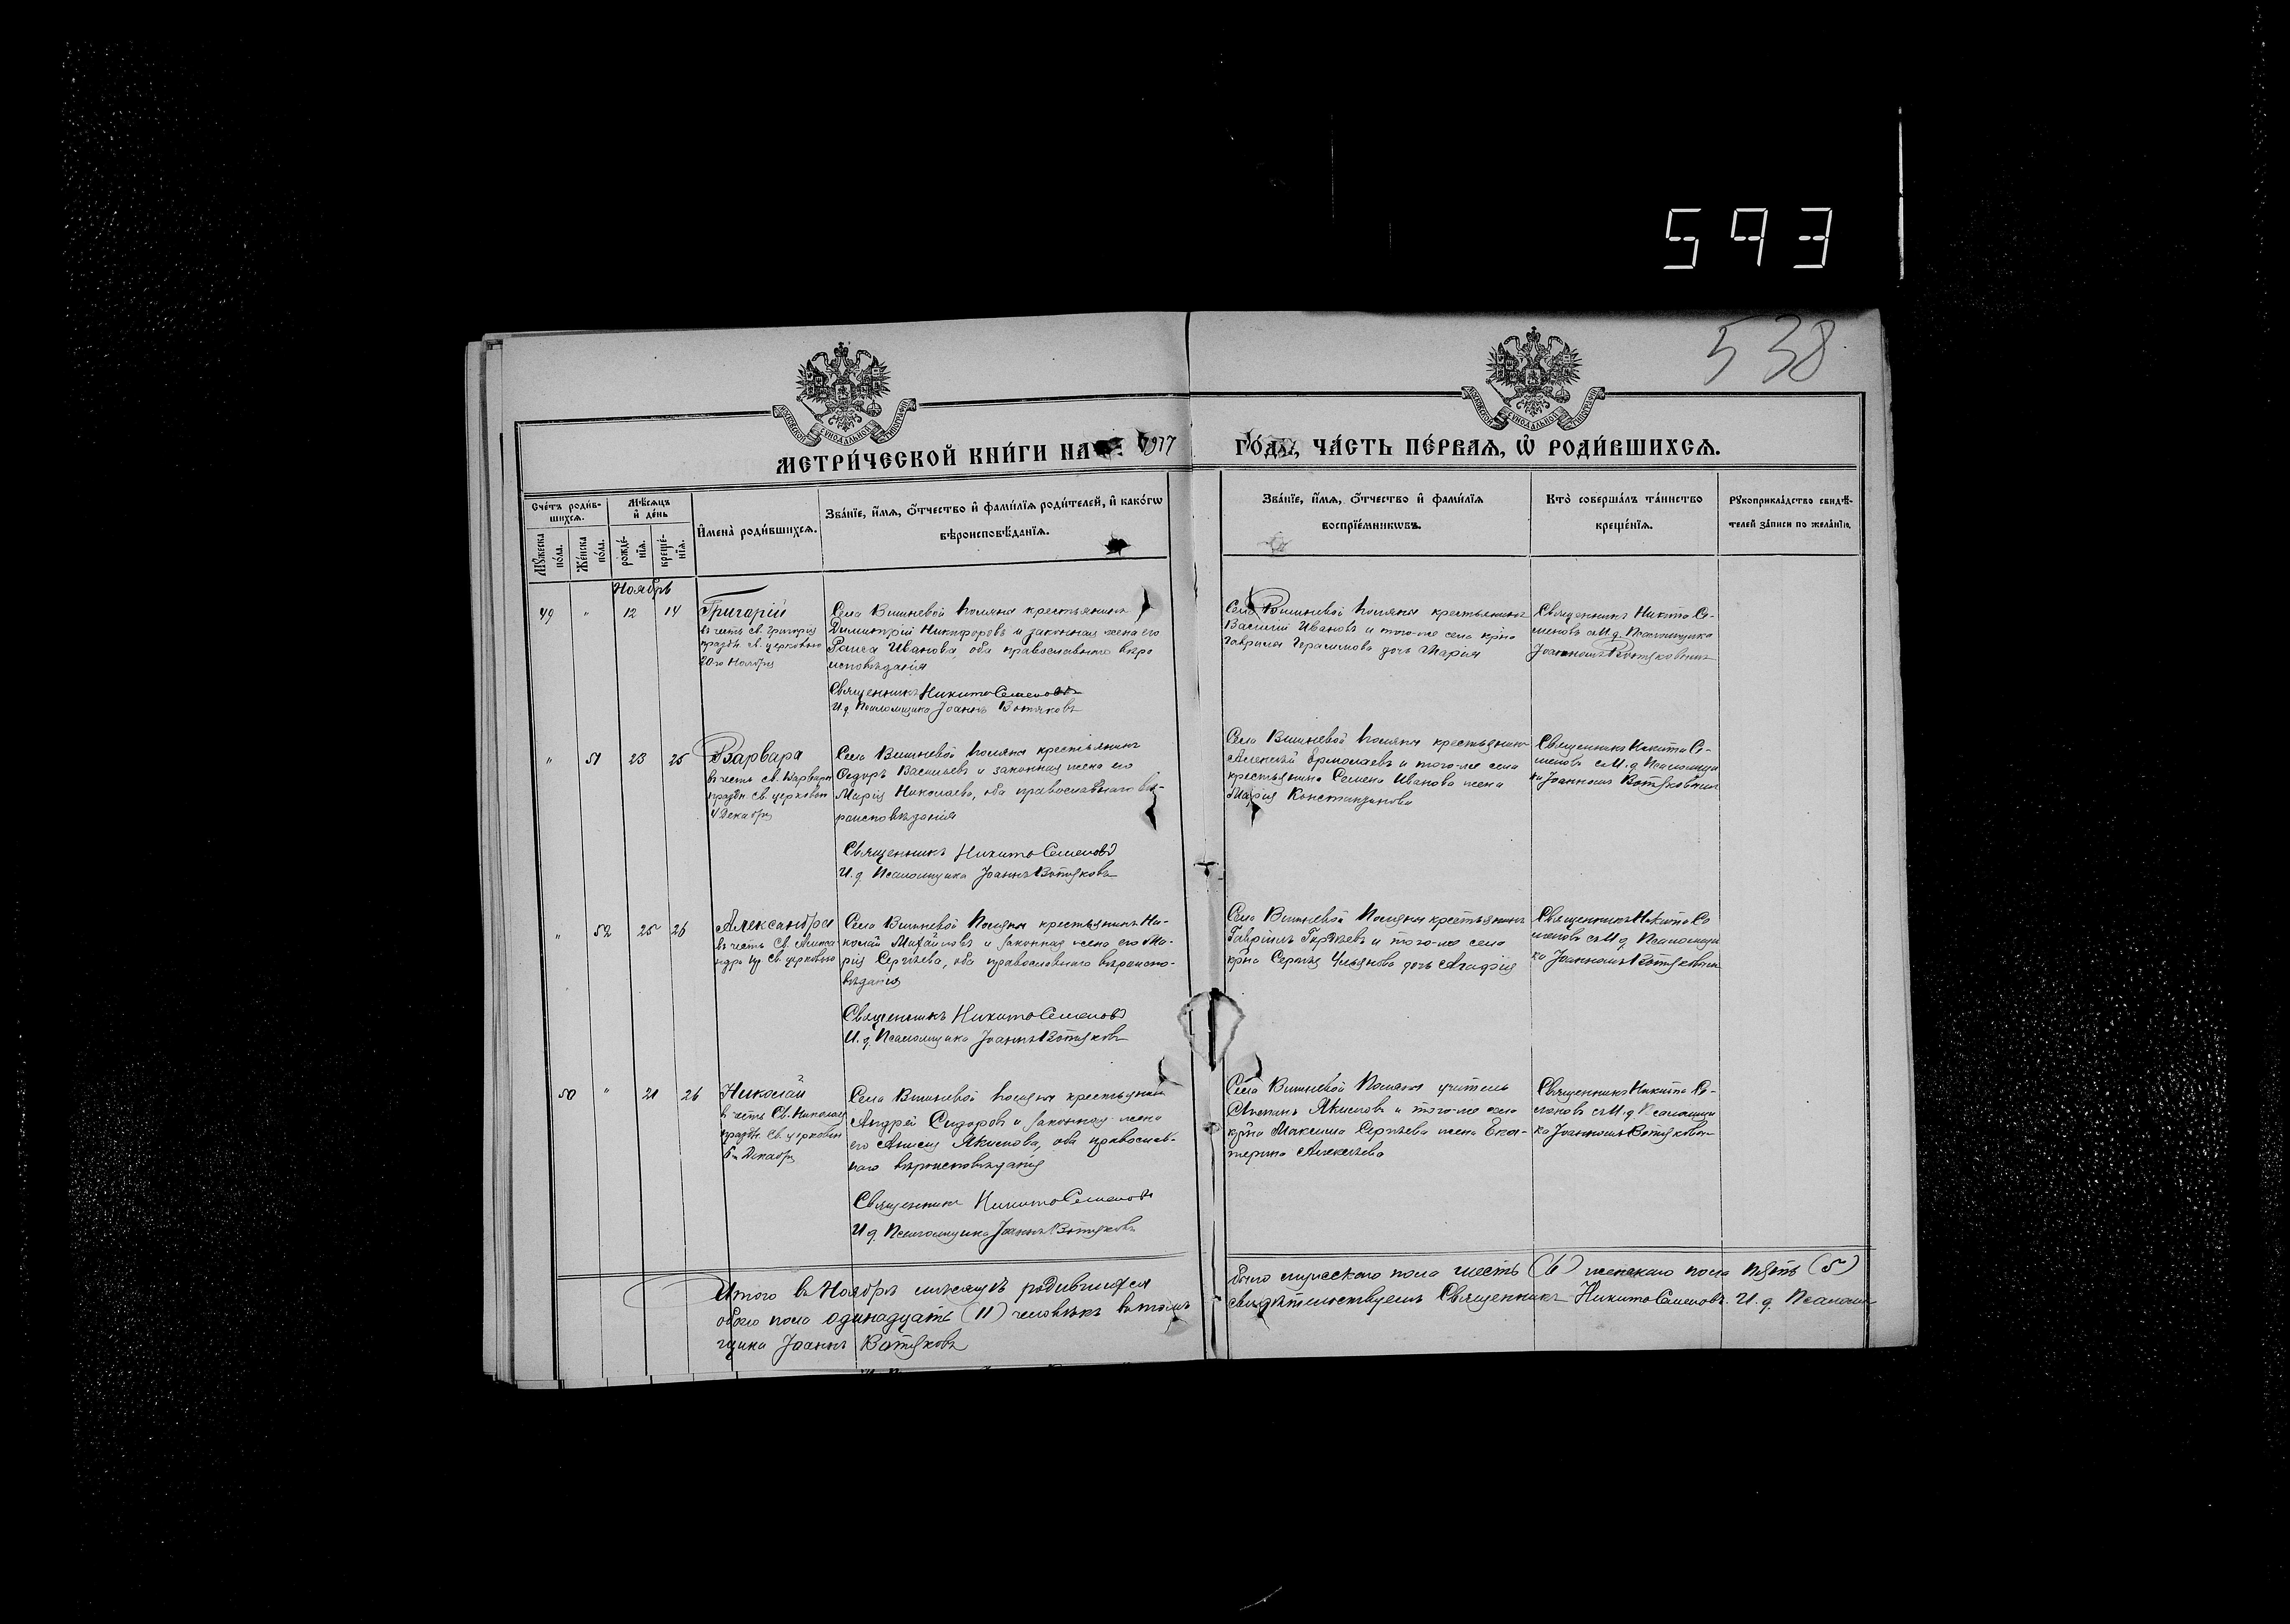 593
538
МЕТРИ́ЧЕСКОЙ КНИ́ГИ НА 1917 ГО́ДЪ, ЧА́СТЬ ПЕ́РВАЯ, Ѡ҆ РОДИ́ВШИХСЯ.
Сче́тъ роди́в-
шихся.
Мѣ́сяцъ
и҆ де́нь
И҆мена̀ роди́вшихся.
Зва́нїе, и҆́мя, ѻ҆́тчество и҆ фами́лїя роди́телей, и҆ како́гѡ
вѣроисповѣ́данїя.
Зва́нїе, и҆́мя, ѻ҆́тчество и҆ фами́лїя
воспрїе́мникѡвъ.
Кто̀ соверша́лъ та́инство
креще́нїя.
Рꙋкоприкла́дство свидѣ́-
телей за́писи по жела́нїю.
Мꙋ́жеска
по́ла.
Же́нска
по́ла.
рожде́-
нїя.
креще́-
нїя.
Ноябрь
49 " 12 14
Григорій
въ честь св. Григорія
праздн. св. церковью
20го Ноября
Села Вишневой Поляны крестьянинъ
Димитрій Никифоровъ и законная жена его
Раиса Иванова, оба православнаго вѣро
исповѣданія
Священникъ Никита Семеновъ
И.д. Псаломщика Іоаннъ Вотяковъ
Села Вишневой Поляны крестьянинъ
Василій Ивановъ и того-же села кр̃на
Гавриила Герасимова дочь Марія
Священникъ Никита Се-
меновъ съ И.д. Псаломщика
Іоанномъ Вотяковымъ
" 51 23 25
Варвара
въ честь св. Варвары
праздн. св. церковью
4 Декабря
Села Вишневой Поляны крестьянинъ
Ѳедоръ Васильевъ и законная жена его
Марія Николаева, оба православнаго вѣ-
роисповѣданія
Священникъ Никита Семеновъ
И.д. Псаломщика Іоаннъ Вотяковъ
Села Вишневой Поляны крестьянинъ
Алексѣй Ермолаевъ и того-же села
крестьянина Семена Иванова жена
Марія Константинова
Священникъ Никита Се-
меновъ съ И.д. Псаломщи
ка Іоанномъ Вотяковымъ
" 52 25 26
Александра
въ честь Св. Алекса
ндры Св. церковью
Села Вишневой Поляны крестьянинъ Ни-
колай Михайловъ и законная жена его Ма-
рія Сергѣева, оба православнаго вѣроиспо-
вѣданія
Священникъ Никита Семеновъ
И.д. Псаломщика Іоаннъ Вотяковъ
Села Вишневой Поляны крестьянинъ
Гавріилъ и того-же села
кр̃на Сергѣя Ульянова дочь Агафія
Священникъ Никита Се
меновъ съ И.д. Псаломщи
ка Іоанномъ Вотяковымъ
50 " 21 26
Николай
въ честь Св. Николая
праздн. Св. церковью
6го Декабря
Села Вишневой Поляны крестьянинъ
Андрей Сидоровъ и законная жена
его Анисія Якимова, оба православ-
наго вѣроисповѣданія
Священникъ Никита Семеновъ
И.д. Псаломщика Іоаннъ Вотяковъ
Села Вишневой Поляны учитель
Якимовъ и того-же села
кр̃на Максима Сергѣева жена Ека-
терина Алексѣева
Священникъ Никита Се-
меновъ съ И.д. Псаломщи
ка Іоанномъ Вотяковымъ
Итого въ Ноябрѣ мѣсяцѣ родившихся
обоего пола одинадцать (11) человѣкъ въ томъ
было мужескаго пола шесть (6) женскаго пола пять (5)
свидѣтельствуемъ Священникъ Никита Семеновъ. И.д. Псалом
щика Іоаннъ Вотяковъ